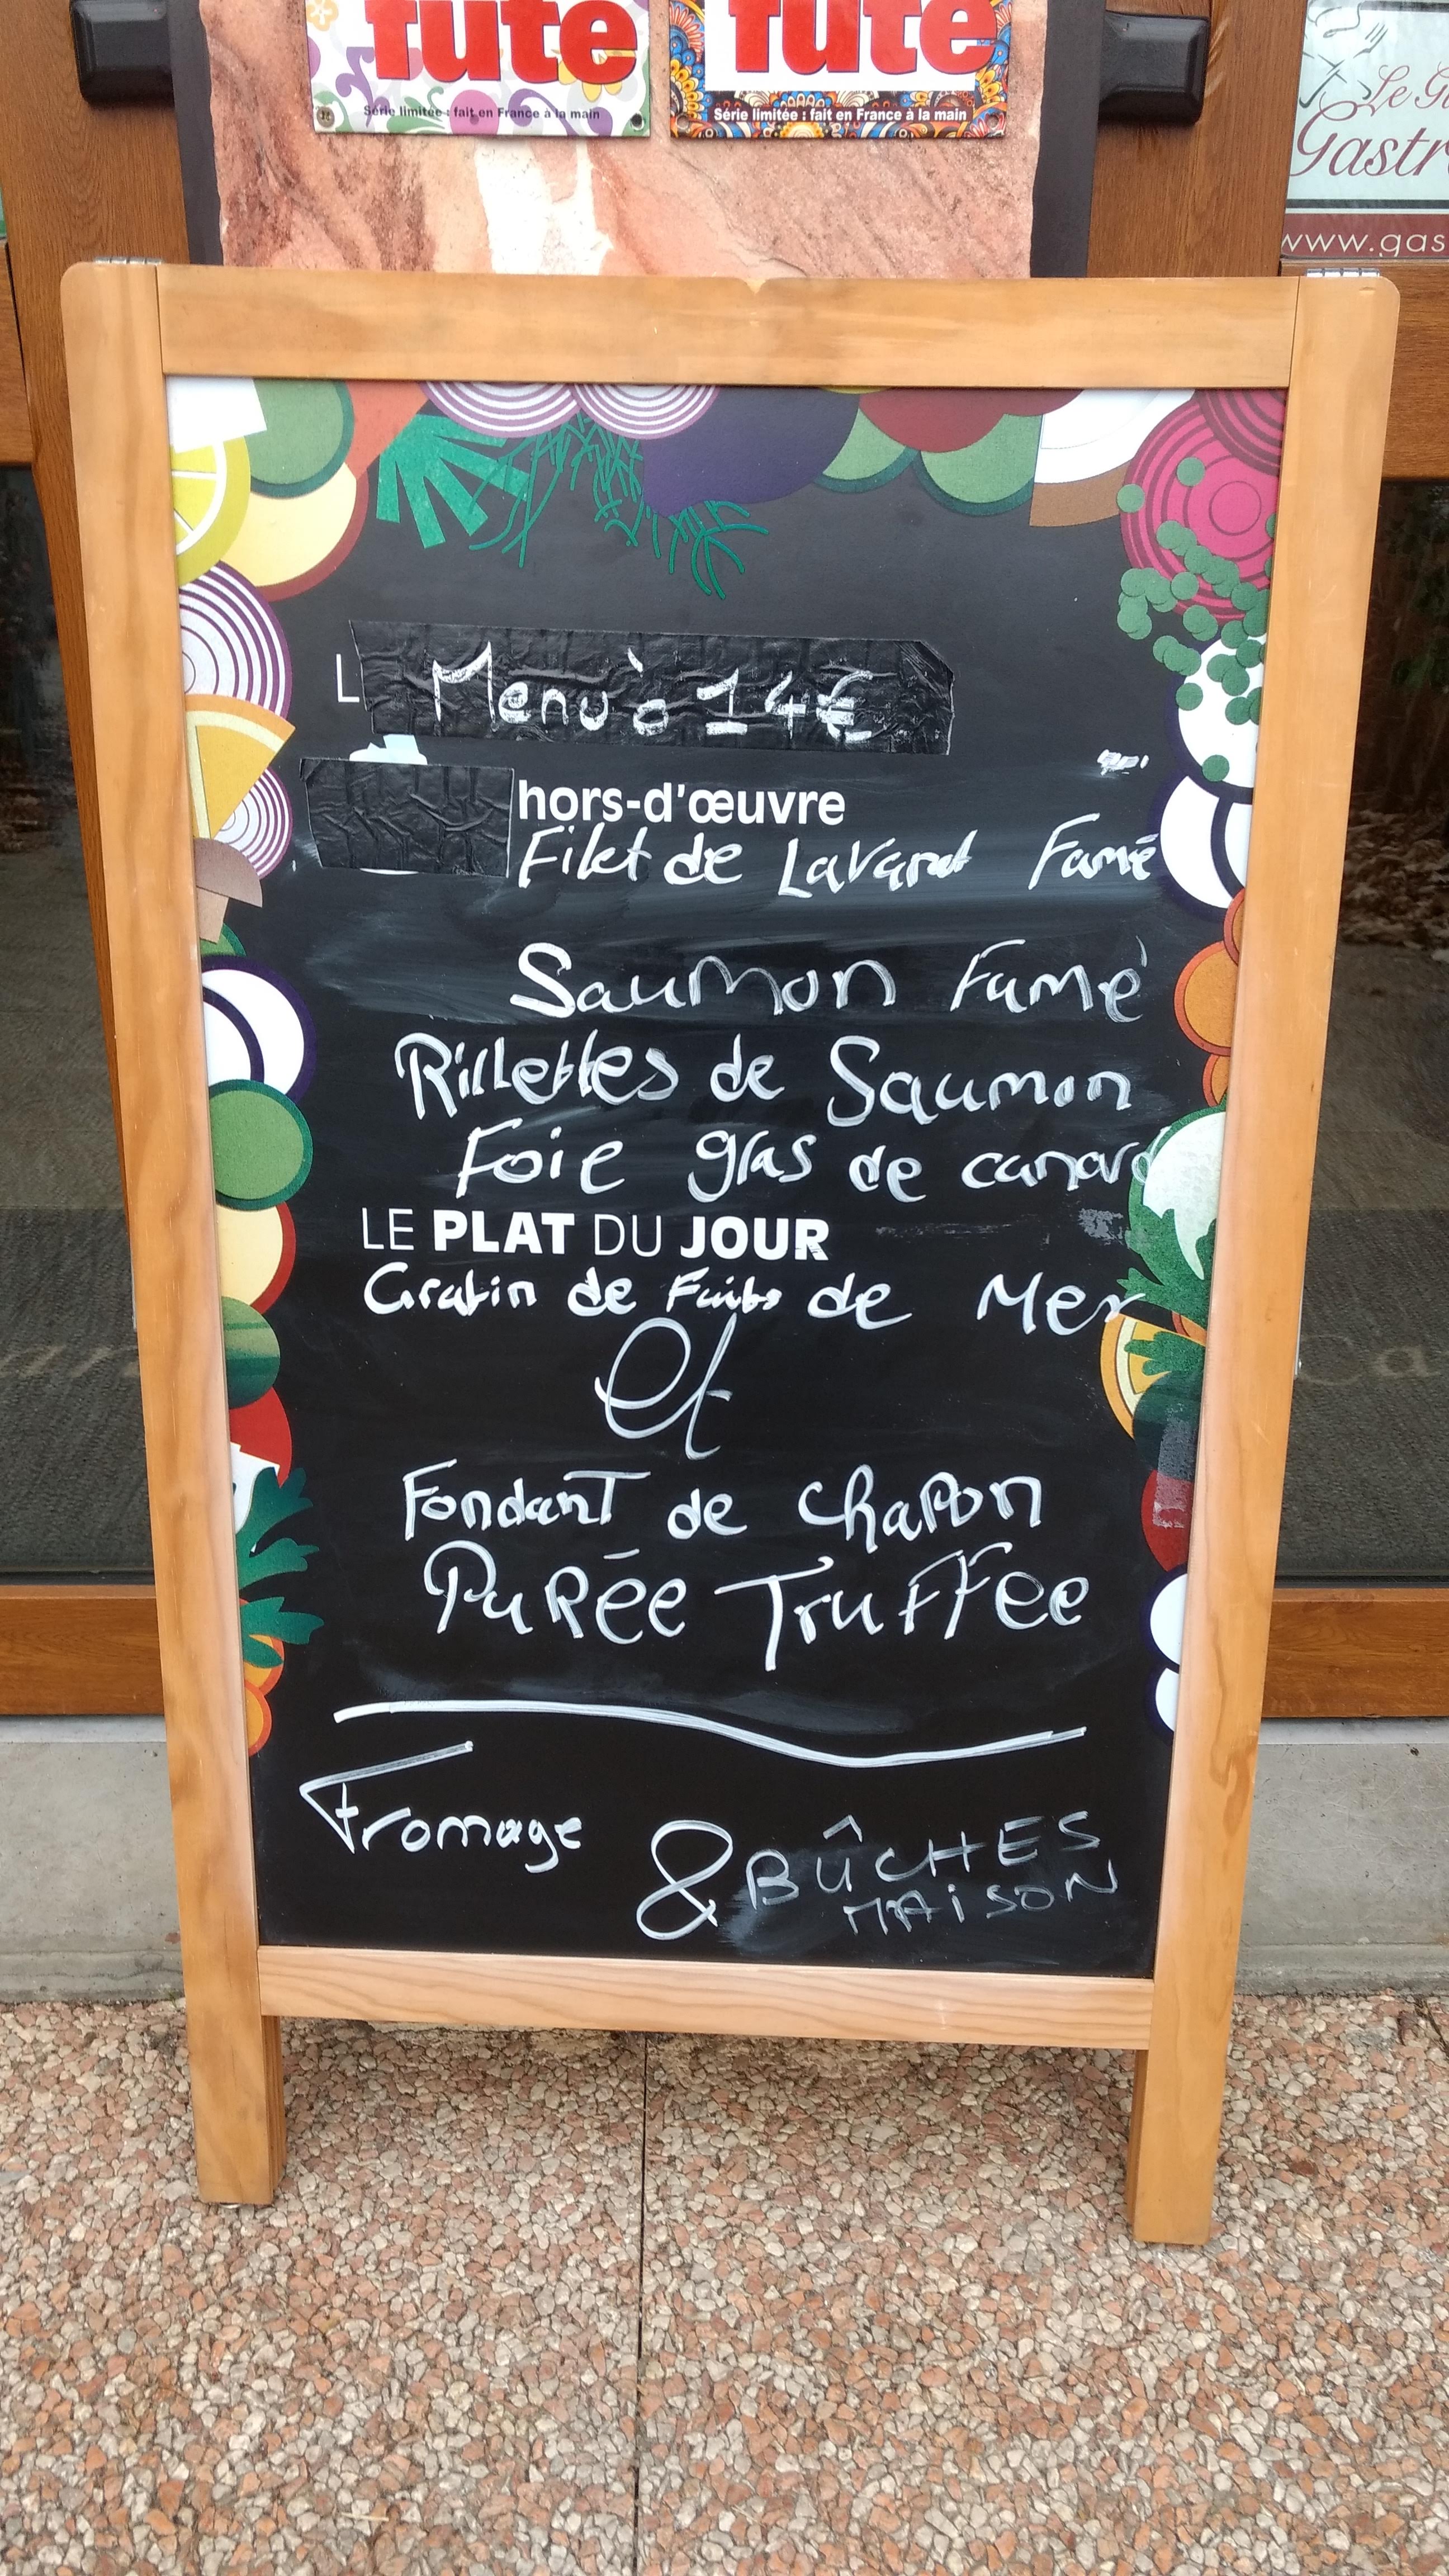 futé
futé
Série limitée : fait en France à la main
Série limitée : fait en France à la main
Le G
Gastr
www.gas
L
Menu à 14€
hors-d'œuvre
Filet de Lavaret Fumé
Saumon Fumé
Rillettes de Saumon
Foie gras de canard
LE PLAT DU JOUR
Gratin de Fuits de Mer
et
Fondant de chapon
Purée Truffée
Fromage
& BÛCHES
MAiSON